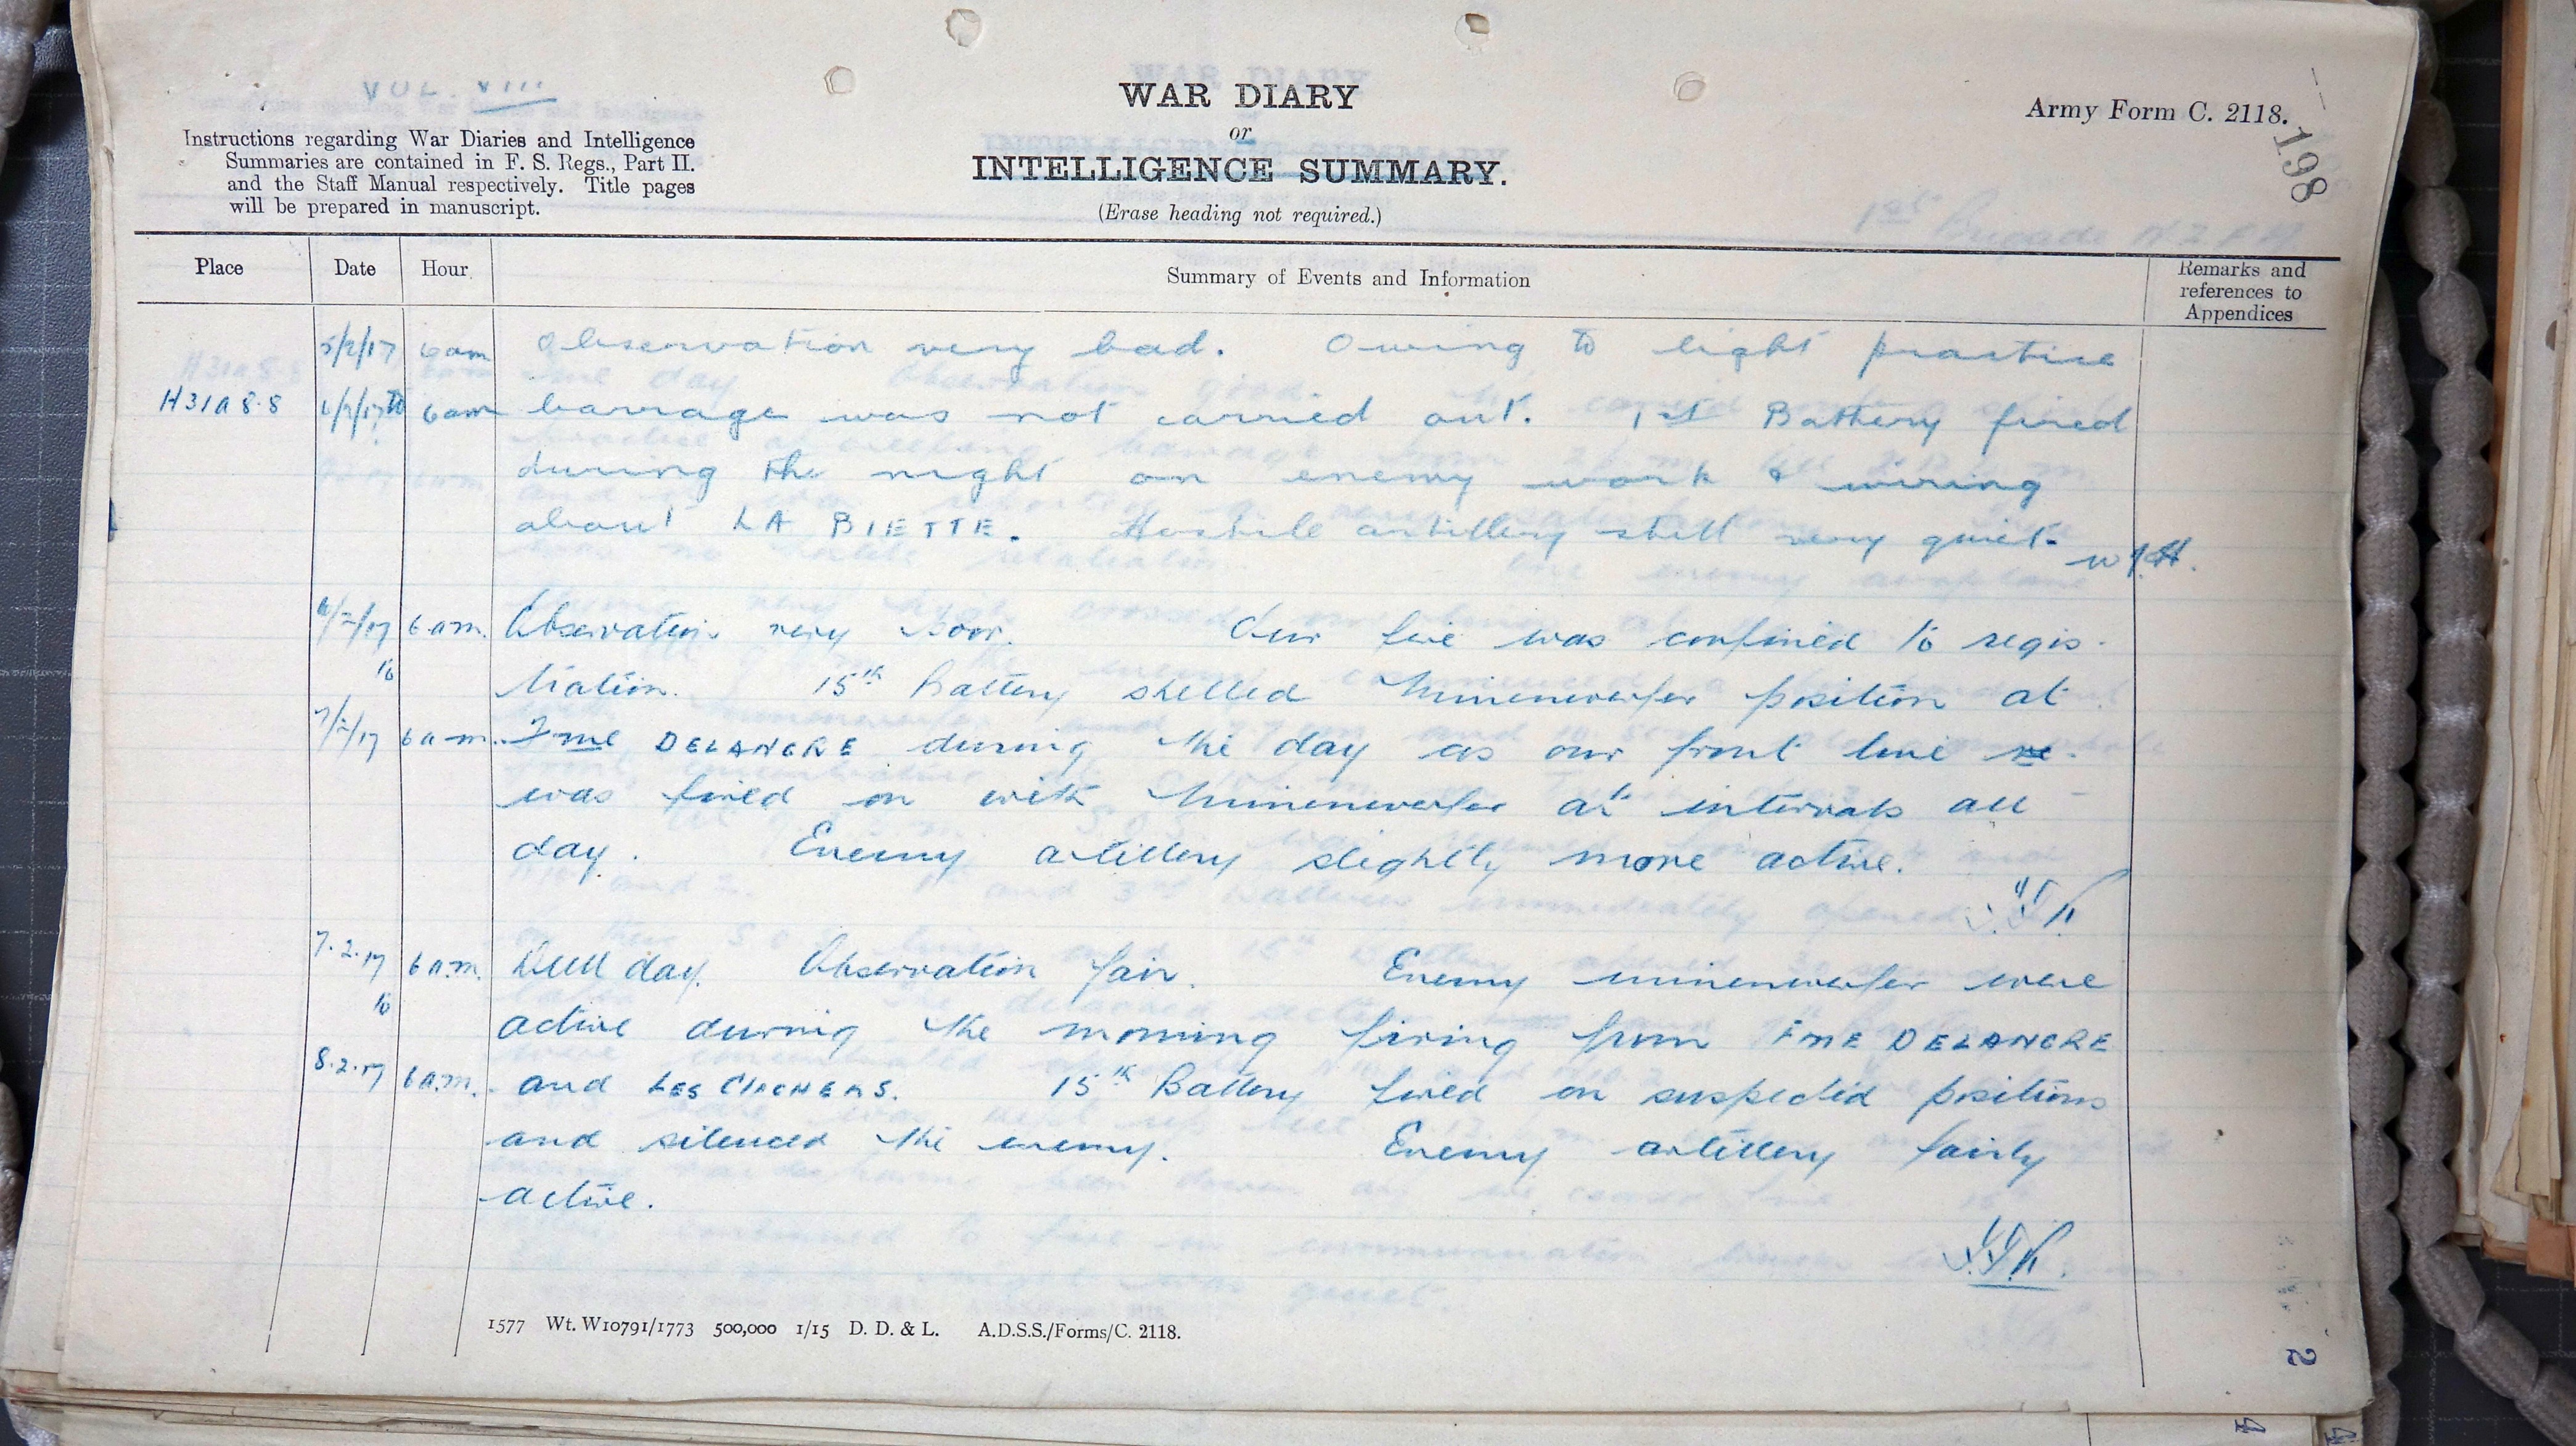 VOL. VIII
Instructions regarding War Diaries and Intelligence
Summaries are contained in F. S. Regs., Part II.
and the Staff Manual respectively. Title pages
will be prepared in manuscript.
WAR DIARY
or
INTELLIGENCE SUMMARY.
(Erase heading not required.)
Army Form C. 2118.
198
Place Date Hour Summary of Events and Information Remarks and references to Appendices
5/2/17 6am Observation very bad. Owing to light practice
H31A 8.8 6/2/17 to 6am barrage was not carried out. 1st Battery fired
during the night on enemy work & wiring
about LA BIETTE. Hostile artillery still very quiet.
6/2/17 6 am. Observation very poor. Our fire was confined to regis-
to tration. 15th Battery shelled Minenwerfer position at
7/2/17 6 am. Fme DELANGRE during the day as our front line
was fired on with Minenwerfer at intervals all
day. Enemy artillery slightly more active.
7.2.17 6 a.m. Dull day. Observation fair. Enemy minenwerfer were
to active during the morning firing from FME DELANGRE
8.2.17 6 a.m. and LES 15th Battery fired on suspected positions
and silenced the enemy. Enemy artillery fairly
active.
1577 Wt. W10791/1773 500,000 1/15 D. D. & L. A.D.S.S./Forms/C. 2118.
2